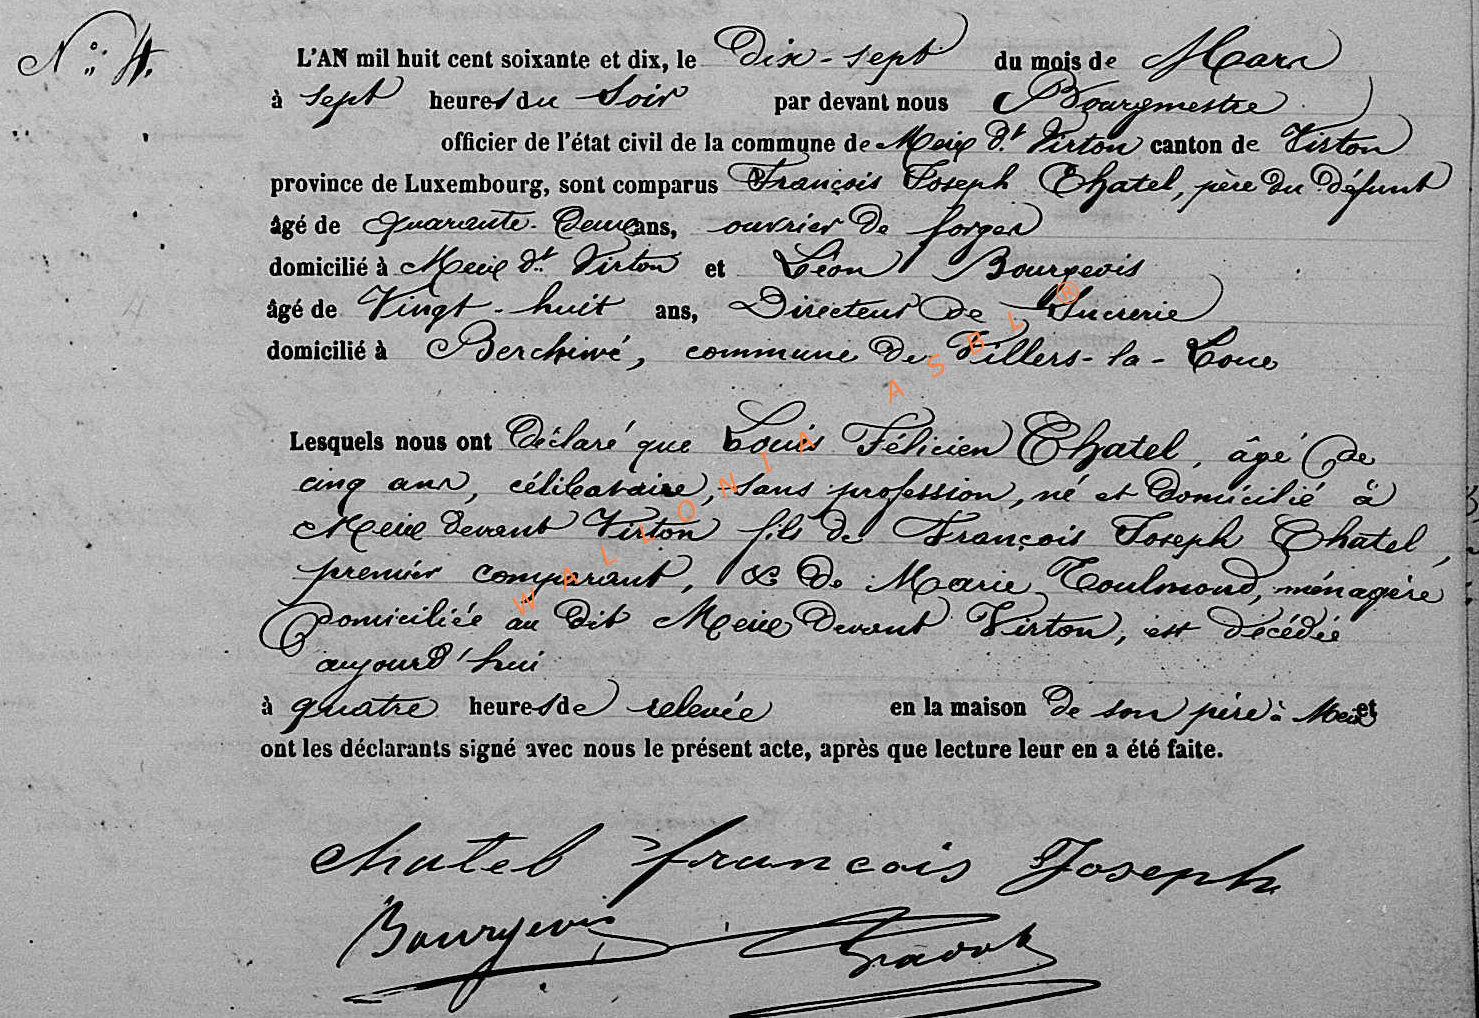 N° 4.
L'AN mil huit cent soixante et dix, le Dix-sept du mois de Mars
à sept heures du Soir par devant nous Bourgmestre
officier de l'état civil de la commune de Meix dt Virton canton de Virton
province de Luxembourg, sont comparus François Joseph Chatel, père du défunt
âgé de quarante-deux ans, ouvrier de forges
domicilié à Meix dt Virton et Léon Bourgeois
âgé de Vingt-huit ans, Directeur de Sucrerie
domicilié à Berchiwé, commune de Villers-la-Loue
Lesquels nous ont Déclaré que Louis Félicien Chatel, âgé de
cinq ans, célibataire, sans profession, né et domicilié à
Meix devant Virton fils de François Joseph Chatel,
premier comparant, & de Marie Toulmond, ménagère
domiciliée au dit Meix devant Virton, est décédée
aujourd'hui
à quatre heures de relevée en la maison de son père à Meix et
ont les déclarants signé avec nous le présent acte, après que lecture leur en a été faite.
chatel francois Joseph
Bourgeois
WALLONIA ASBL ®